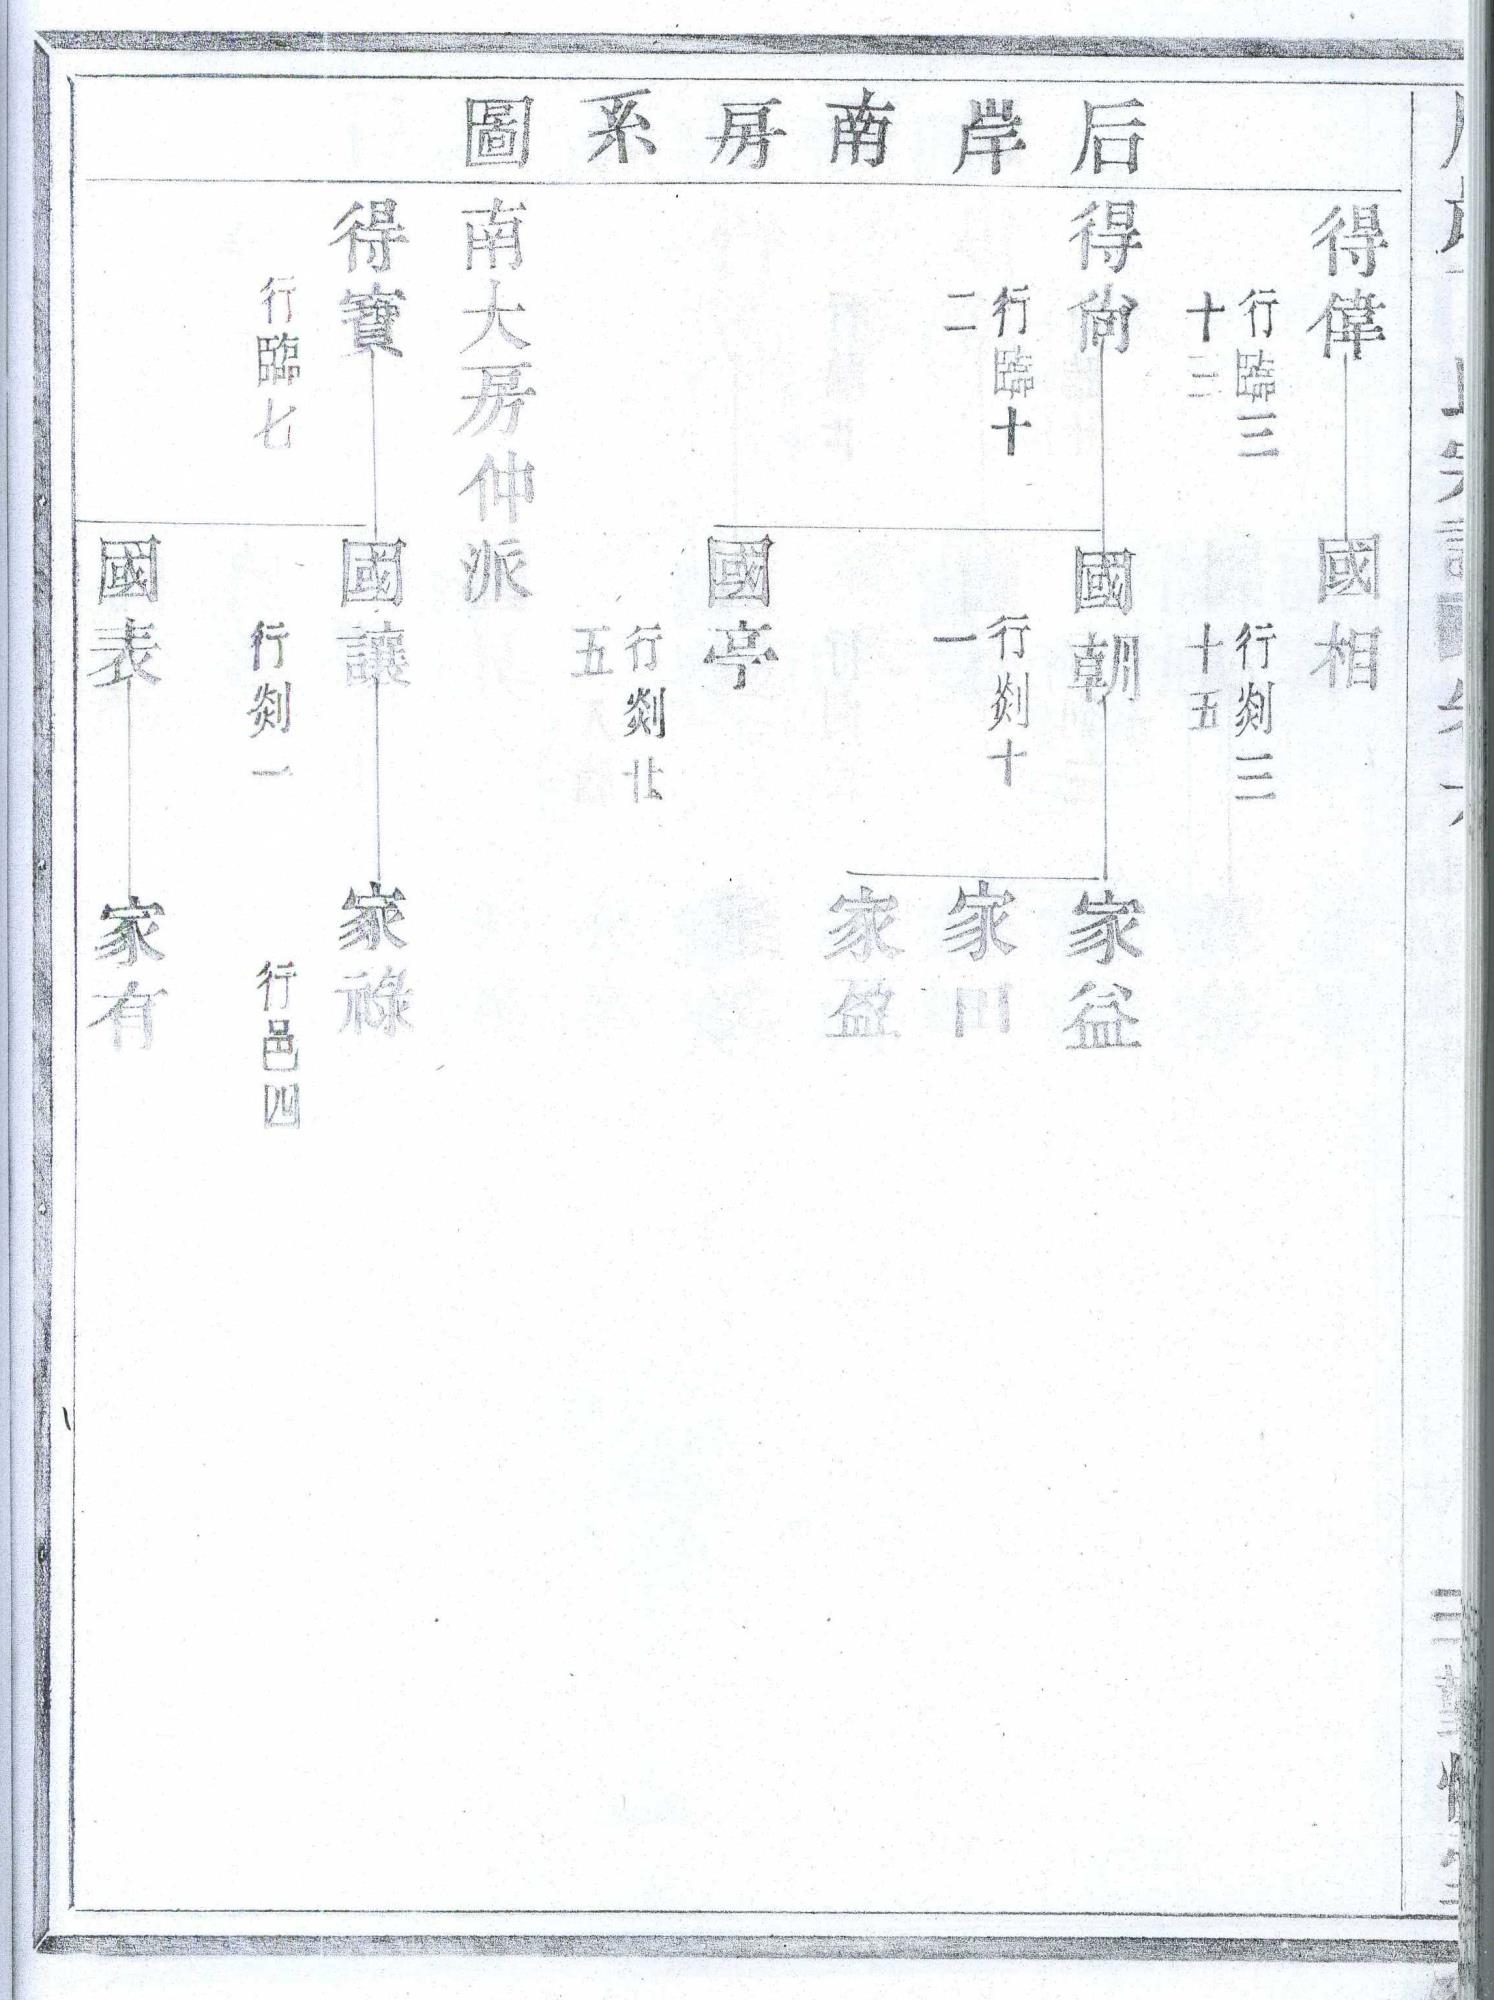 后岸南房系圖
得偉
行臨三
十三
國相
行剡三
十五
得尙
行臨十
二
國朝
行剡十
一
家益
家田
家盈
國亭
行剡廿
五
南大房仲派
得寶
行臨七
國讓
行剡一
家祿
行邑四
國表
家有